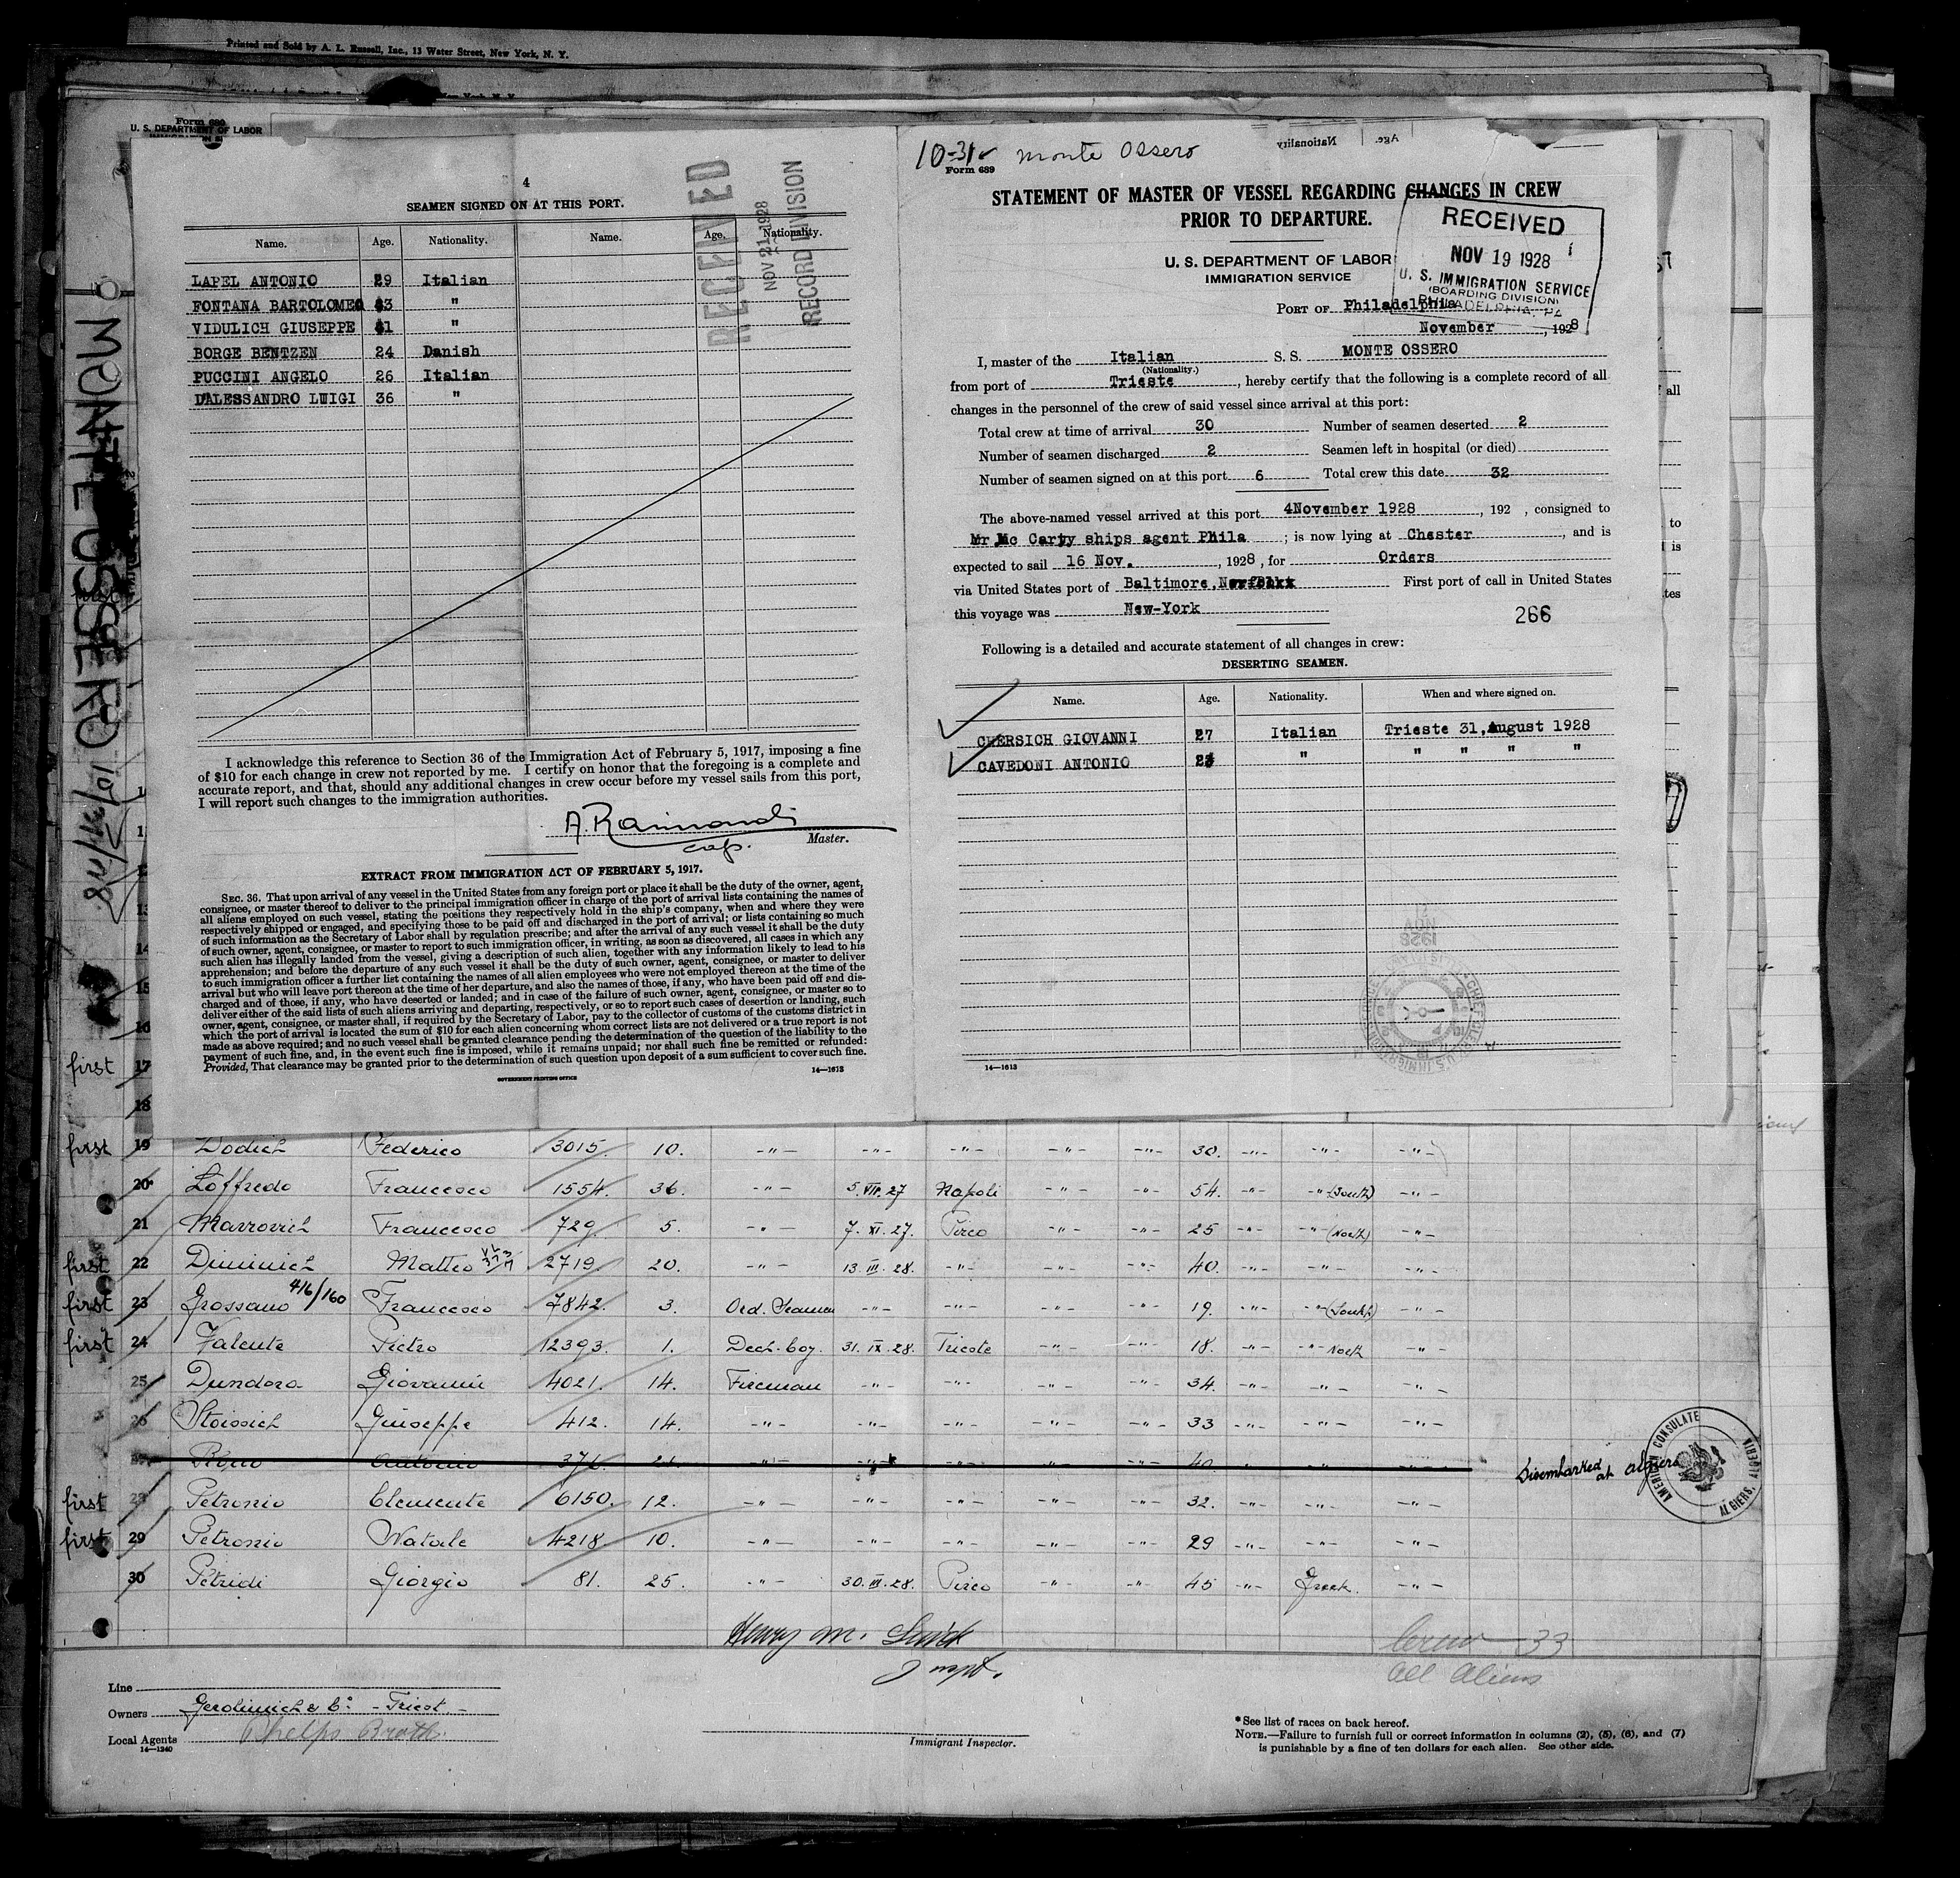 Printed and Sold by A. L. Russell, Inc., 13 Water Street, New York, N. Y.
Form 689
U. S. DEPARTMENT OF LABOR
MONTE OSSERO 10/31/28
4
SEAMEN SIGNED ON AT THIS PORT.
RECEIVED
NOV 21 1928
RECORD DIVISION
Name. Age. Nationality. Name. Age. Nationality.
LAPEL ANTONIO 29 Italian
FONTANA BARTOLOMEO 43 "
VIDULICH GIUSEPPE 41 "
BORGE BENTZEN 24 Danish
PUCCINI ANGELO 26 Italian
D'ALESSANDRO LUIGI 36 "
I acknowledge this reference to Section 36 of the Immigration Act of February 5, 1917, imposing a fine
of $10 for each change in crew not reported by me. I certify on honor that the foregoing is a complete and
accurate report, and that, should any additional changes in crew occur before my vessel sails from this port,
I will report such changes to the immigration authorities.
A. Raimondi
cap. Master.
EXTRACT FROM IMMIGRATION ACT OF FEBRUARY 5, 1917.
SEC. 36. That upon arrival of any vessel in the United States from any foreign port or place it shall be the duty of the owner, agent,
consignee, or master thereof to deliver to the principal immigration officer in charge of the port of arrival lists containing the names of
all aliens employed on such vessel, stating the positions they respectively hold in the ship's company, when and where they were
respectively shipped or engaged, and specifying those to be paid off and discharged in the port of arrival; or lists containing so much
of such information as the Secretary of Labor shall by regulation prescribe; and after the arrival of any such vessel it shall be the duty
of such owner, agent, consignee, or master to report to such immigration officer, in writing, as soon as discovered, all cases in which any
such alien has illegally landed from the vessel, giving a description of such alien, together with any information likely to lead to his
apprehension; and before the departure of any such vessel it shall be the duty of such owner, agent, consignee, or master to deliver
to such immigration officer a further list containing the names of all alien employees who were not employed thereon at the time of the
arrival but who will leave port thereon at the time of her departure, and also the names of those, if any, who have been paid off and dis-
charged and of those, if any, who have deserted or landed; and in case of the failure of such owner, agent, consignee, or master so to
deliver either of the said lists of such aliens arriving and departing, respectively, or so to report such cases of desertion or landing, such
owner, agent, consignee, or master shall, if required by the Secretary of Labor, pay to the collector of customs of the customs district in
which the port of arrival is located the sum of $10 for each alien concerning whom correct lists are not delivered or a true report is not
made as above required; and no such vessel shall be granted clearance pending the determination of the question of the liability to the
payment of such fine, and, in the event such fine is imposed, while it remains unpaid; nor shall such fine be remitted or refunded:
Provided, That clearance may be granted prior to the determination of such question upon deposit of a sum sufficient to cover such fine.
GOVERNMENT PRINTING OFFICE 14—1613
10-31 Monte Ossero
Form 689
STATEMENT OF MASTER OF VESSEL REGARDING CHANGES IN CREW
PRIOR TO DEPARTURE.
U. S. DEPARTMENT OF LABOR
IMMIGRATION SERVICE
RECEIVED
NOV 19 1928
U. S. IMMIGRATION SERVICE
(BOARDING DIVISION)
PHILADELPHIA, PA.
PORT OF Philadelphia
November, 1928
I, master of the Italian S. S. MONTE OSSERO
(Nationality.)
from port of Trieste, hereby certify that the following is a complete record of all
changes in the personnel of the crew of said vessel since arrival at this port:
Total crew at time of arrival 30 Number of seamen deserted 2
Number of seamen discharged 2 Seamen left in hospital (or died)
Number of seamen signed on at this port 6 Total crew this date 32
The above-named vessel arrived at this port 4November 1928, 192 , consigned to
Mr Mc Carty ships agent Phila ; is now lying at Chester, and is
expected to sail 16 Nov., 1928, for Orders
via United States port of Baltimore, First port of call in United States
this voyage was New-York
266
Following is a detailed and accurate statement of all changes in crew:
DESERTING SEAMEN.
Name. Age. Nationality. When and where signed on.
CHERSICH GIOVANNI 27 Italian Trieste 31,August 1928
CAVEDONI ANTONIO " " " " "
14—1613
first 17
18
first 19 Dodich Federico 3015 10. -"- -"- -"- -"- -"- 30. -"- -"- -"-
20 Loffredo Francesco 1554. 36. -"- 5.VII.27 Napoli -"- -"- 54. -"- -"-(South) -"-
21 Marrovich Francesco 729. 5. -"- 7.XI.27. Pireo -"- -"- 25 -"- -"-(North) -"-
first 22 Diminich Matteo 2719. 20. -"- 13.III.28. -"- -"- -"- 40. -"- -"- -"-
first 23 Grossano 416/160 Francesco 7842. 3. Ord. Seaman -"- -"- -"- -"- 19. -"- -"-(South) -"-
first 24 Valente Pietro 12393. 1. Deck-boy. 31.IX.28. Trieste -"- -"- 18. -"- -"- North -"-
25 Dundora Giovanni 4021. 14. Fireman -"- -"- -"- -"- 34. -"- -"- -"-
26 Stoissich Giuseppe 412. 14. -"- -"- -"- -"- -"- 33 -"- -"- -"-
Antonio 376. 21. -"- -"- 40. -"- Disembarked at Algiers
AMERICAN CONSULATE ALGIERS, ALGERIA
first 28 Petronio Clemente 6150. 12. -"- -"- -"- -"- -"- 32. -"- -"- -"-
first 29 Petronio Natale 4218. 10. -"- -"- -"- -"- -"- 29 -"- -"- -"-
30 Petridi Giorgio 81. 25. -"- 30.III.28. Pireo -"- -"- 45 -"- Greek. -"-
Henry M.
Inspt.
Crew—33
All Aliens
Line
Owners Gerolimich & Co. - Triest -
Local Agents Phelps Broth.
14—1240
Immigrant Inspector.
*See list of races on back hereof.
NOTE.—Failure to furnish full or correct information in columns (2), (5), (6), and (7)
is punishable by a fine of ten dollars for each alien. See other side.